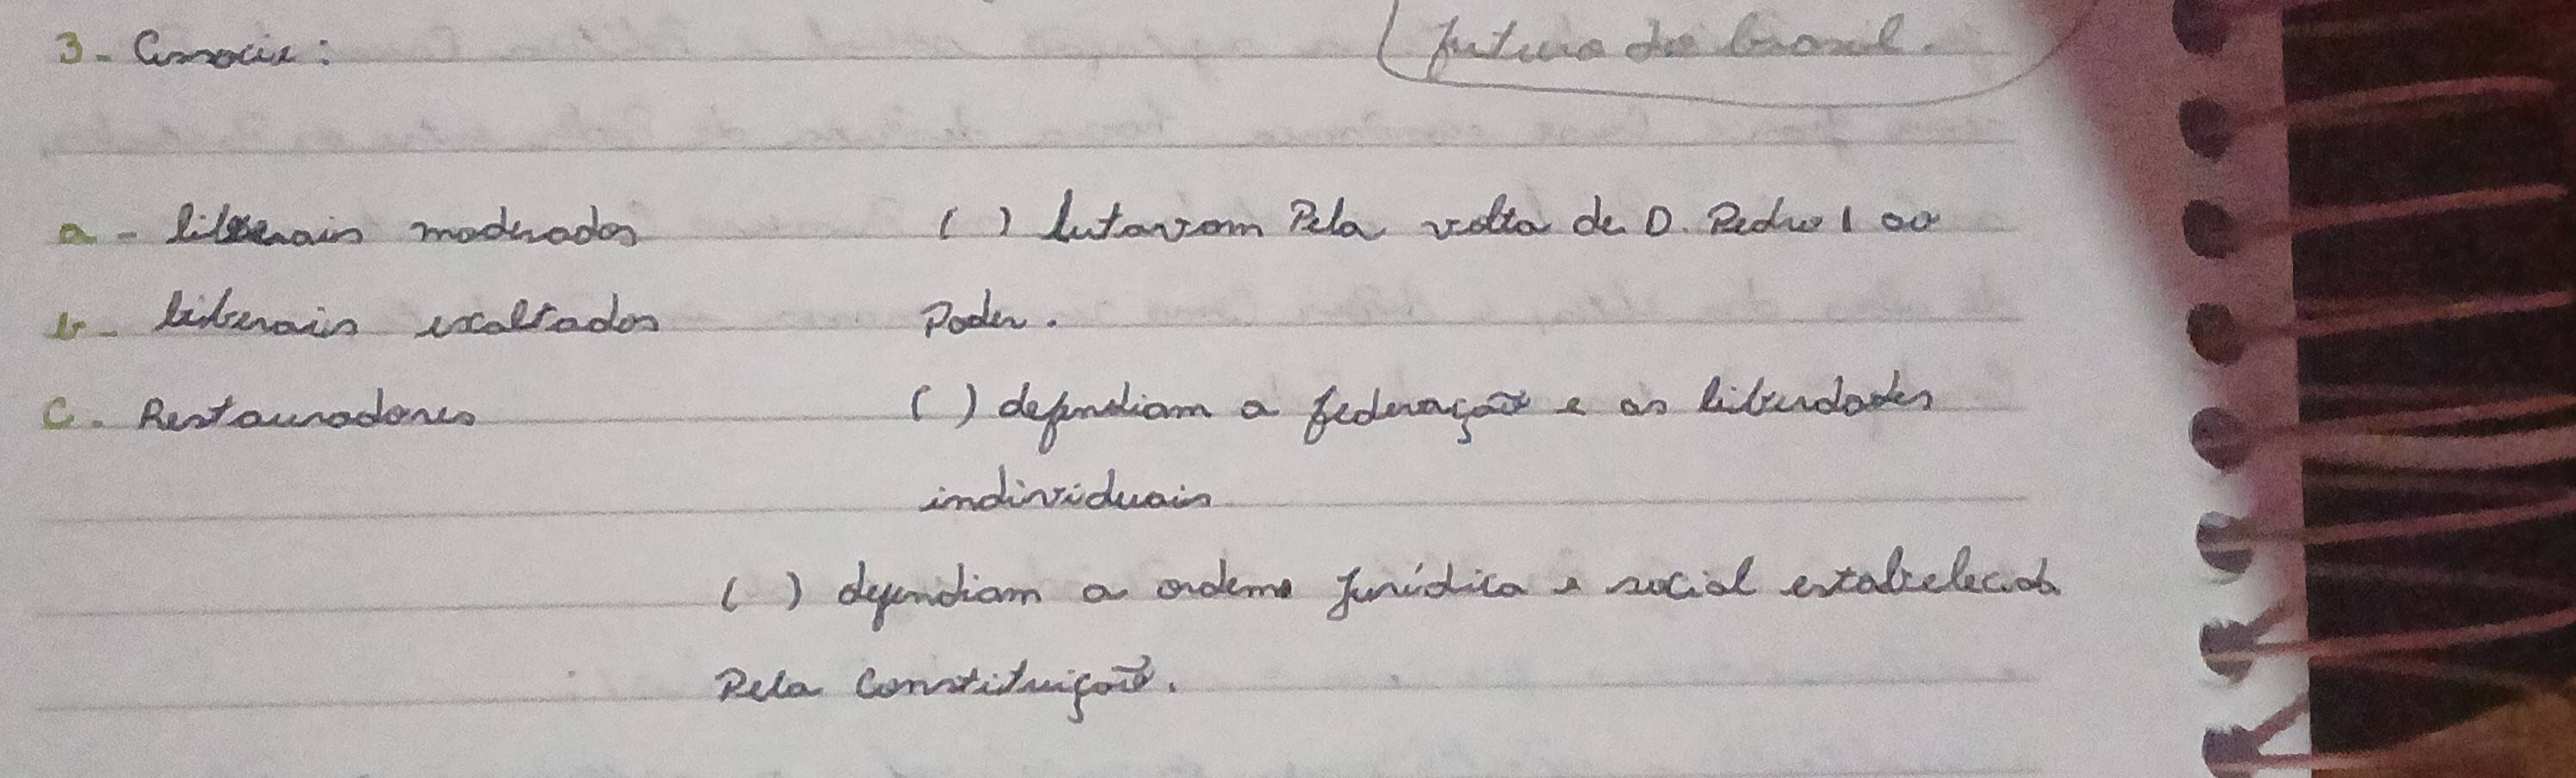 futuro do brasil.
3- Associe:
a - liberais moderados ( ) lutavam Pela volta de D. Pedro I ao
b- liberais exaltados Poder.
C. Restauradores ( ) defendiam a federação e as liberdades
individuais
( ) defendiam a ordem Jurídica e social estabelecida
Pela Constituição.